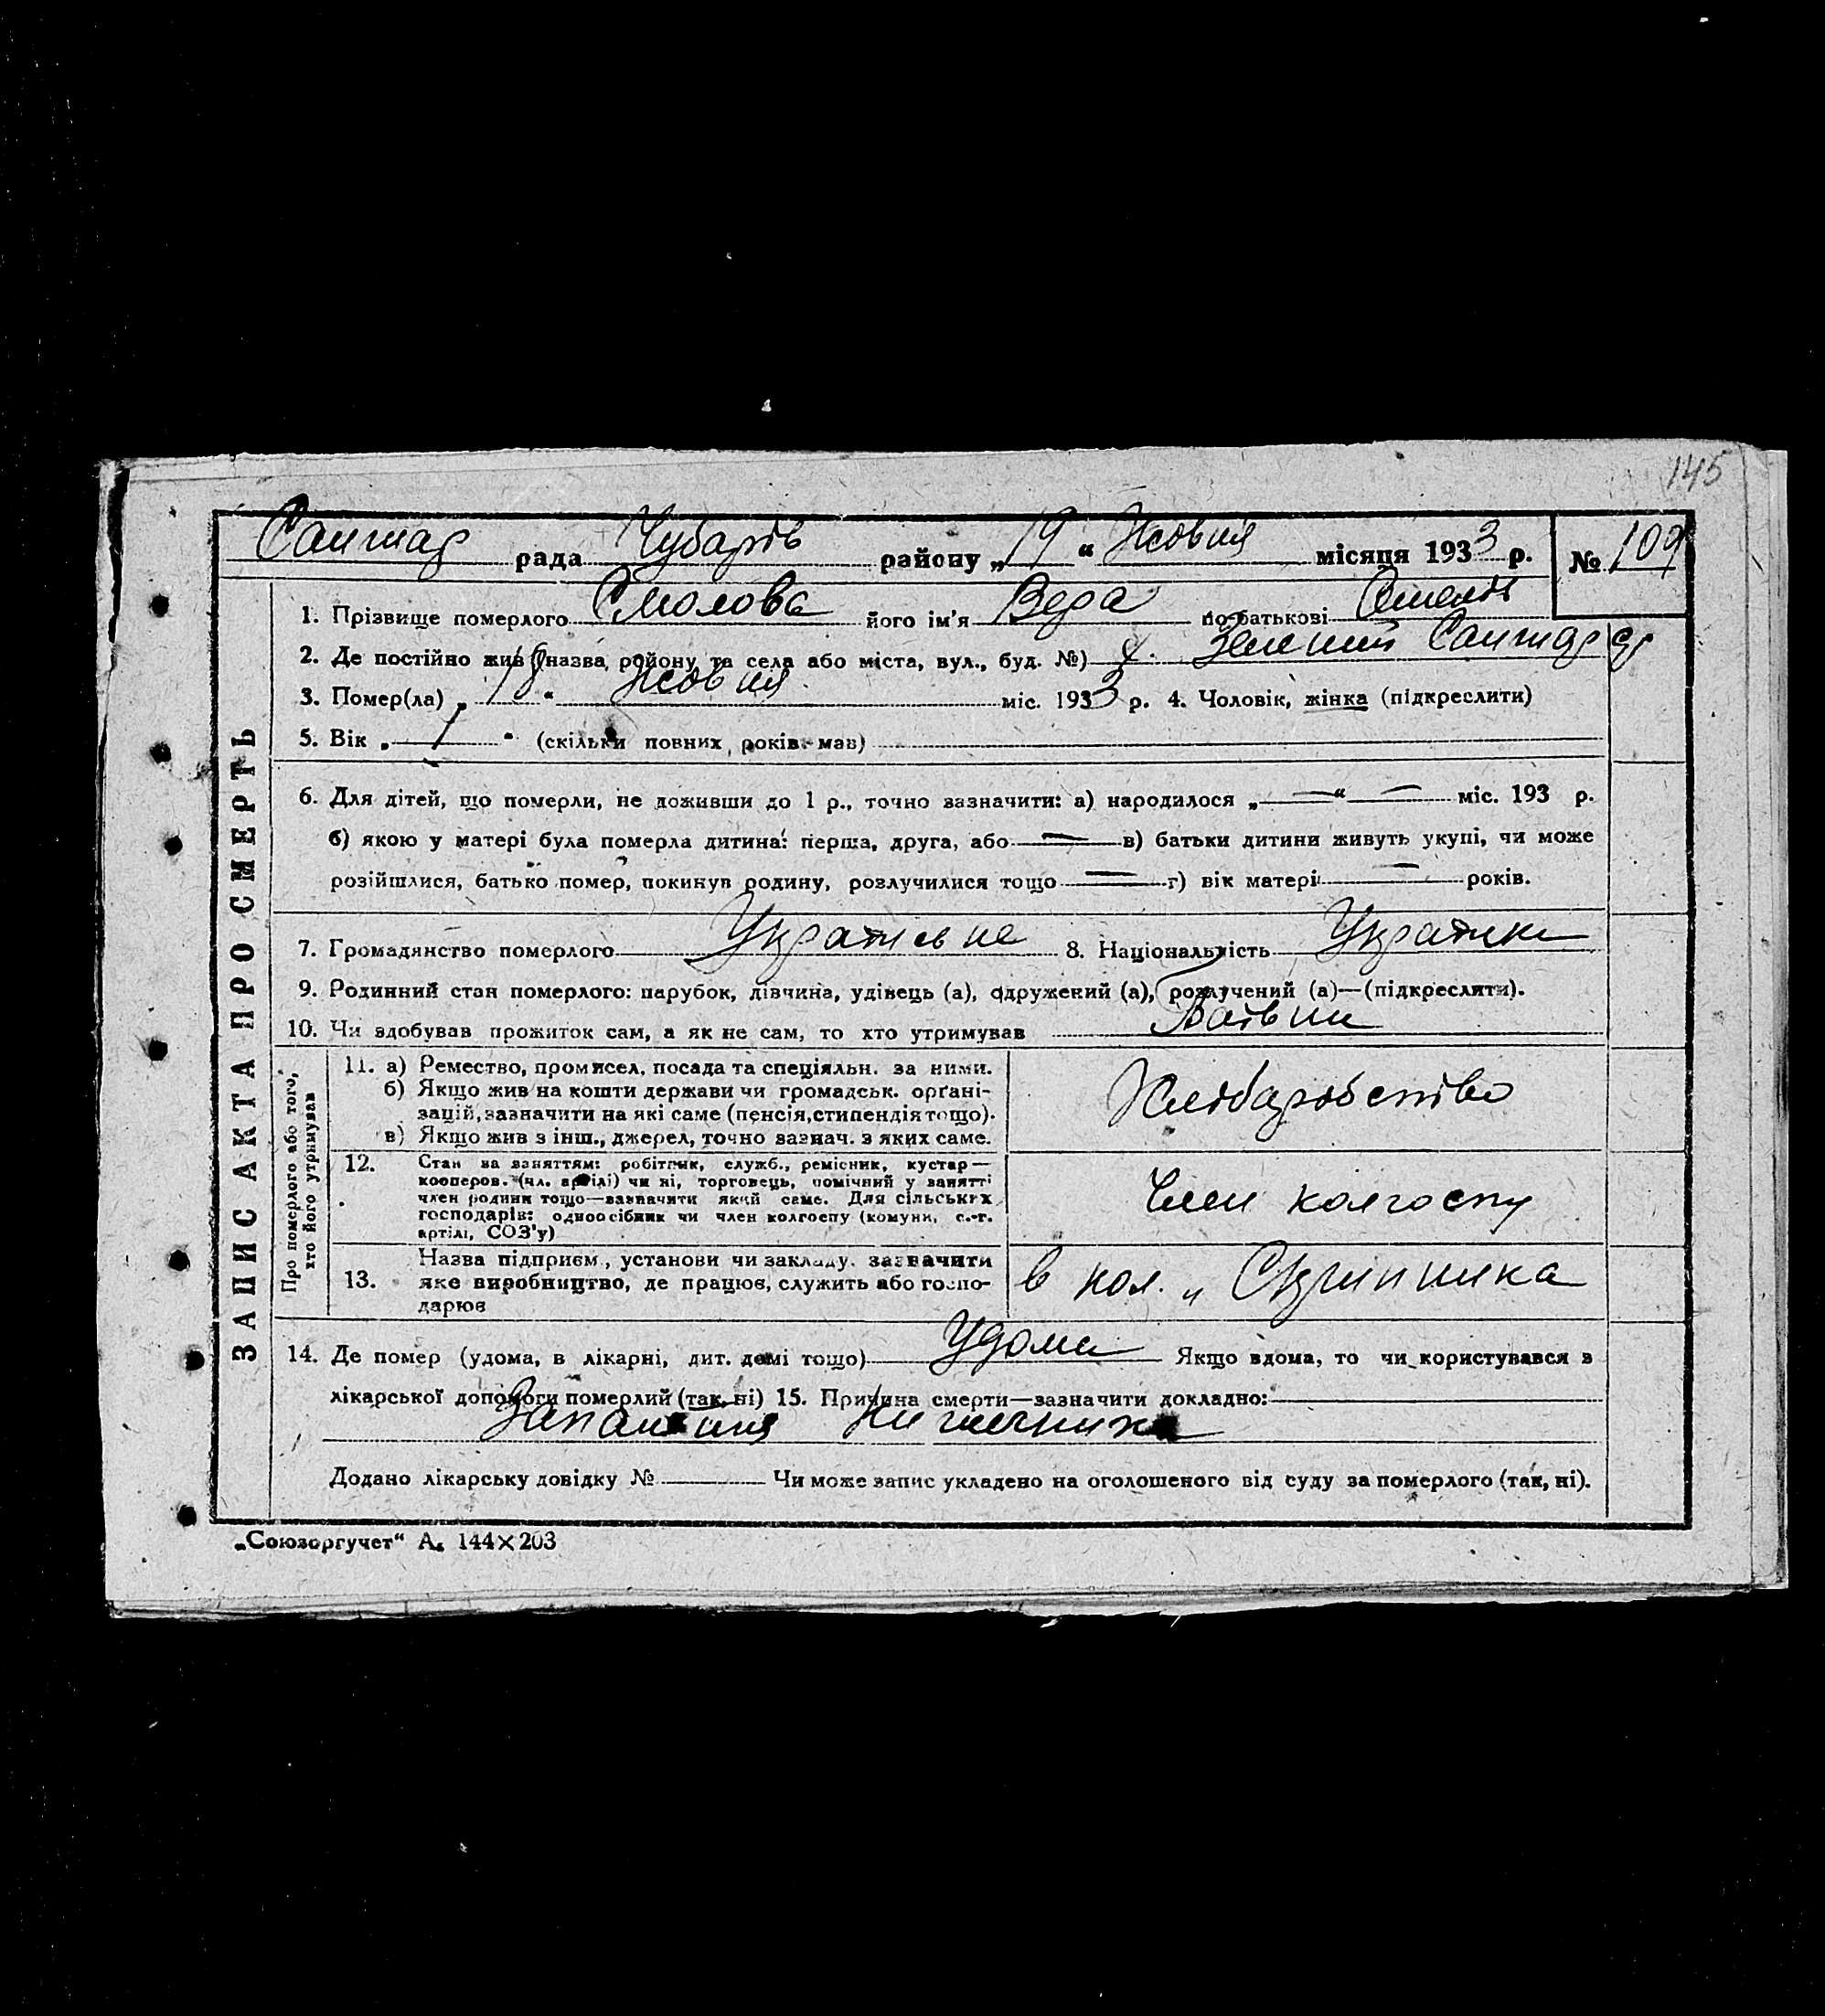 145
Санжар рада Чубарів району „19“ Жовтня місяця 1933 р. № 109
ЗАПИС АКТА ПРО СМЕРТЬ
1. Прізвище померлого Смолова його ім'я Вера по батькові
2. Де постійно жив (назва району та села або міста, вул., буд. №)
3. Помер(ла) „18“ Жовтня міс. 1933 р. 4. Чоловік, жінка (підкреслити)
5. Вік „1“ (скільки повних років мав)
6. Для дітей, що померли, не доживши до 1 р., точно зазначити: а) народилося „—“ — міс. 193 р.
б) якою у матері була померла дитина: перша, друга, або — в) батьки дитини живуть укупі, чи може
розійшлися, батько помер, покинув родину, розлучилися тощо — г) вік матері — років.
7. Громадянство померлого 8. Національність
9. Родинний стан померлого: парубок, дівчина, удівець (а), одружений (а), розлучений (а)—(підкреслити).
10. Чи здобував прожиток сам, а як не сам, то хто утримував
Про померлого або того, хто його утримував
11. а) Ремество, промисел, посада та спеціяльн. за ними.
б) Якщо жив на кошти держави чи громадськ. орґані-
зацій, зазначити на які саме (пенсія, стипендія тощо).
в) Якщо жив з інш., джерел, точно зазнач. з яких саме.
Хліборобство
12. Стан за заняттям: робітник, служб., ремісник, кустар—
кооперов. (чл. артілі) чи ні, торговець, помічний у занятті
член родини тощо—зазначити який саме. Для сільських
господарів: одноосібник чи член колгоспу (комуни, с.-г.
артілі, СОЗ'у)
Член колгоспу
13. Назва підприєм., установи чи закладу. зазначити
яке виробництво, де працює, служить або госпо-
дарює
в кол. „ Скрипника
14. Де помер (удома, в лікарні, дит. домі тощо) Удома Якщо вдома, то чи користувався в
лікарської допомоги померлий (так, ні) 15. Причина смерти—зазначити докладно:
Запаления
Додано лікарську довідку № Чи може запис укладено на оголошеного від суду за померлого (так, ні).
„Союзоргучет“ А. 144×203